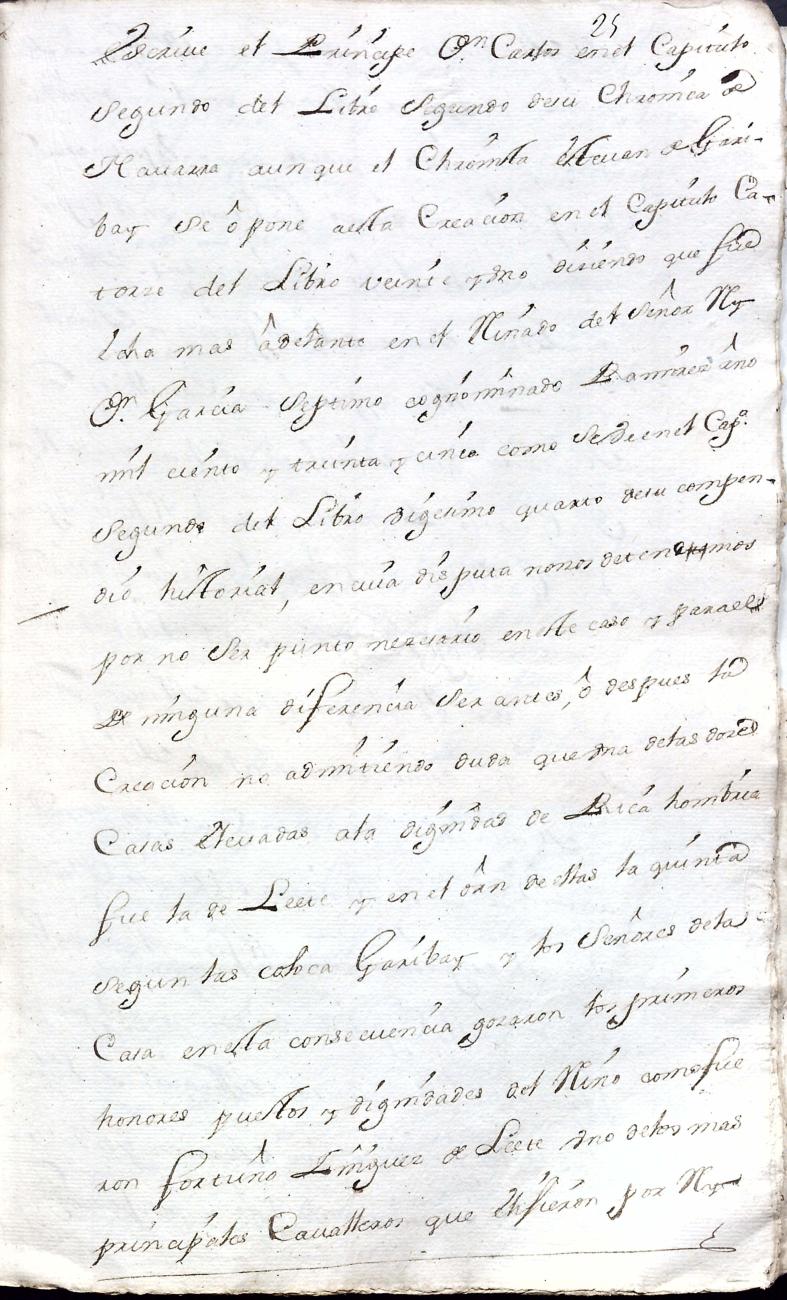 25
Escrive el Principe Dn. Carlos en el Capitulo
Segundo del Libro Segundo desu Chronica de
Navarra aunque el Chronista Estevan de Gari-
bay se ôpone aesta Creacion en el Capitulo Ca-
torze del Libro veinte y Vno diciendo que fue
êcha mas âdelante en el Rnado del Señor Ry
Dn. Garcia Septimo cognominado Ramirez âno
mil ciento y treinta y cinco como Se Vee en el Capo.
Segundo del Libro Vigesimo quarto desu compen-
dio historial, en cuia disputa no nos detendremos
por no Ser punto nezesario en este caso y para el
De ninguna diferencia Ser antes, ô despues la
Creacion no admitiendo duda que Vna delas doze
Casas êlevadas ala dignidad de Rica hombria
fue la de Leete y en el ôrn de ellas la quinta
segun las coloca Garibay y los Señores dela
Casa en esta consecuencia gozaron los primeros
honores puestos y dignidades del Rno como fue
ron fortuño Iñiguez de Leete Vno delos mas
principales Cavalleros que êlisieron por Ry